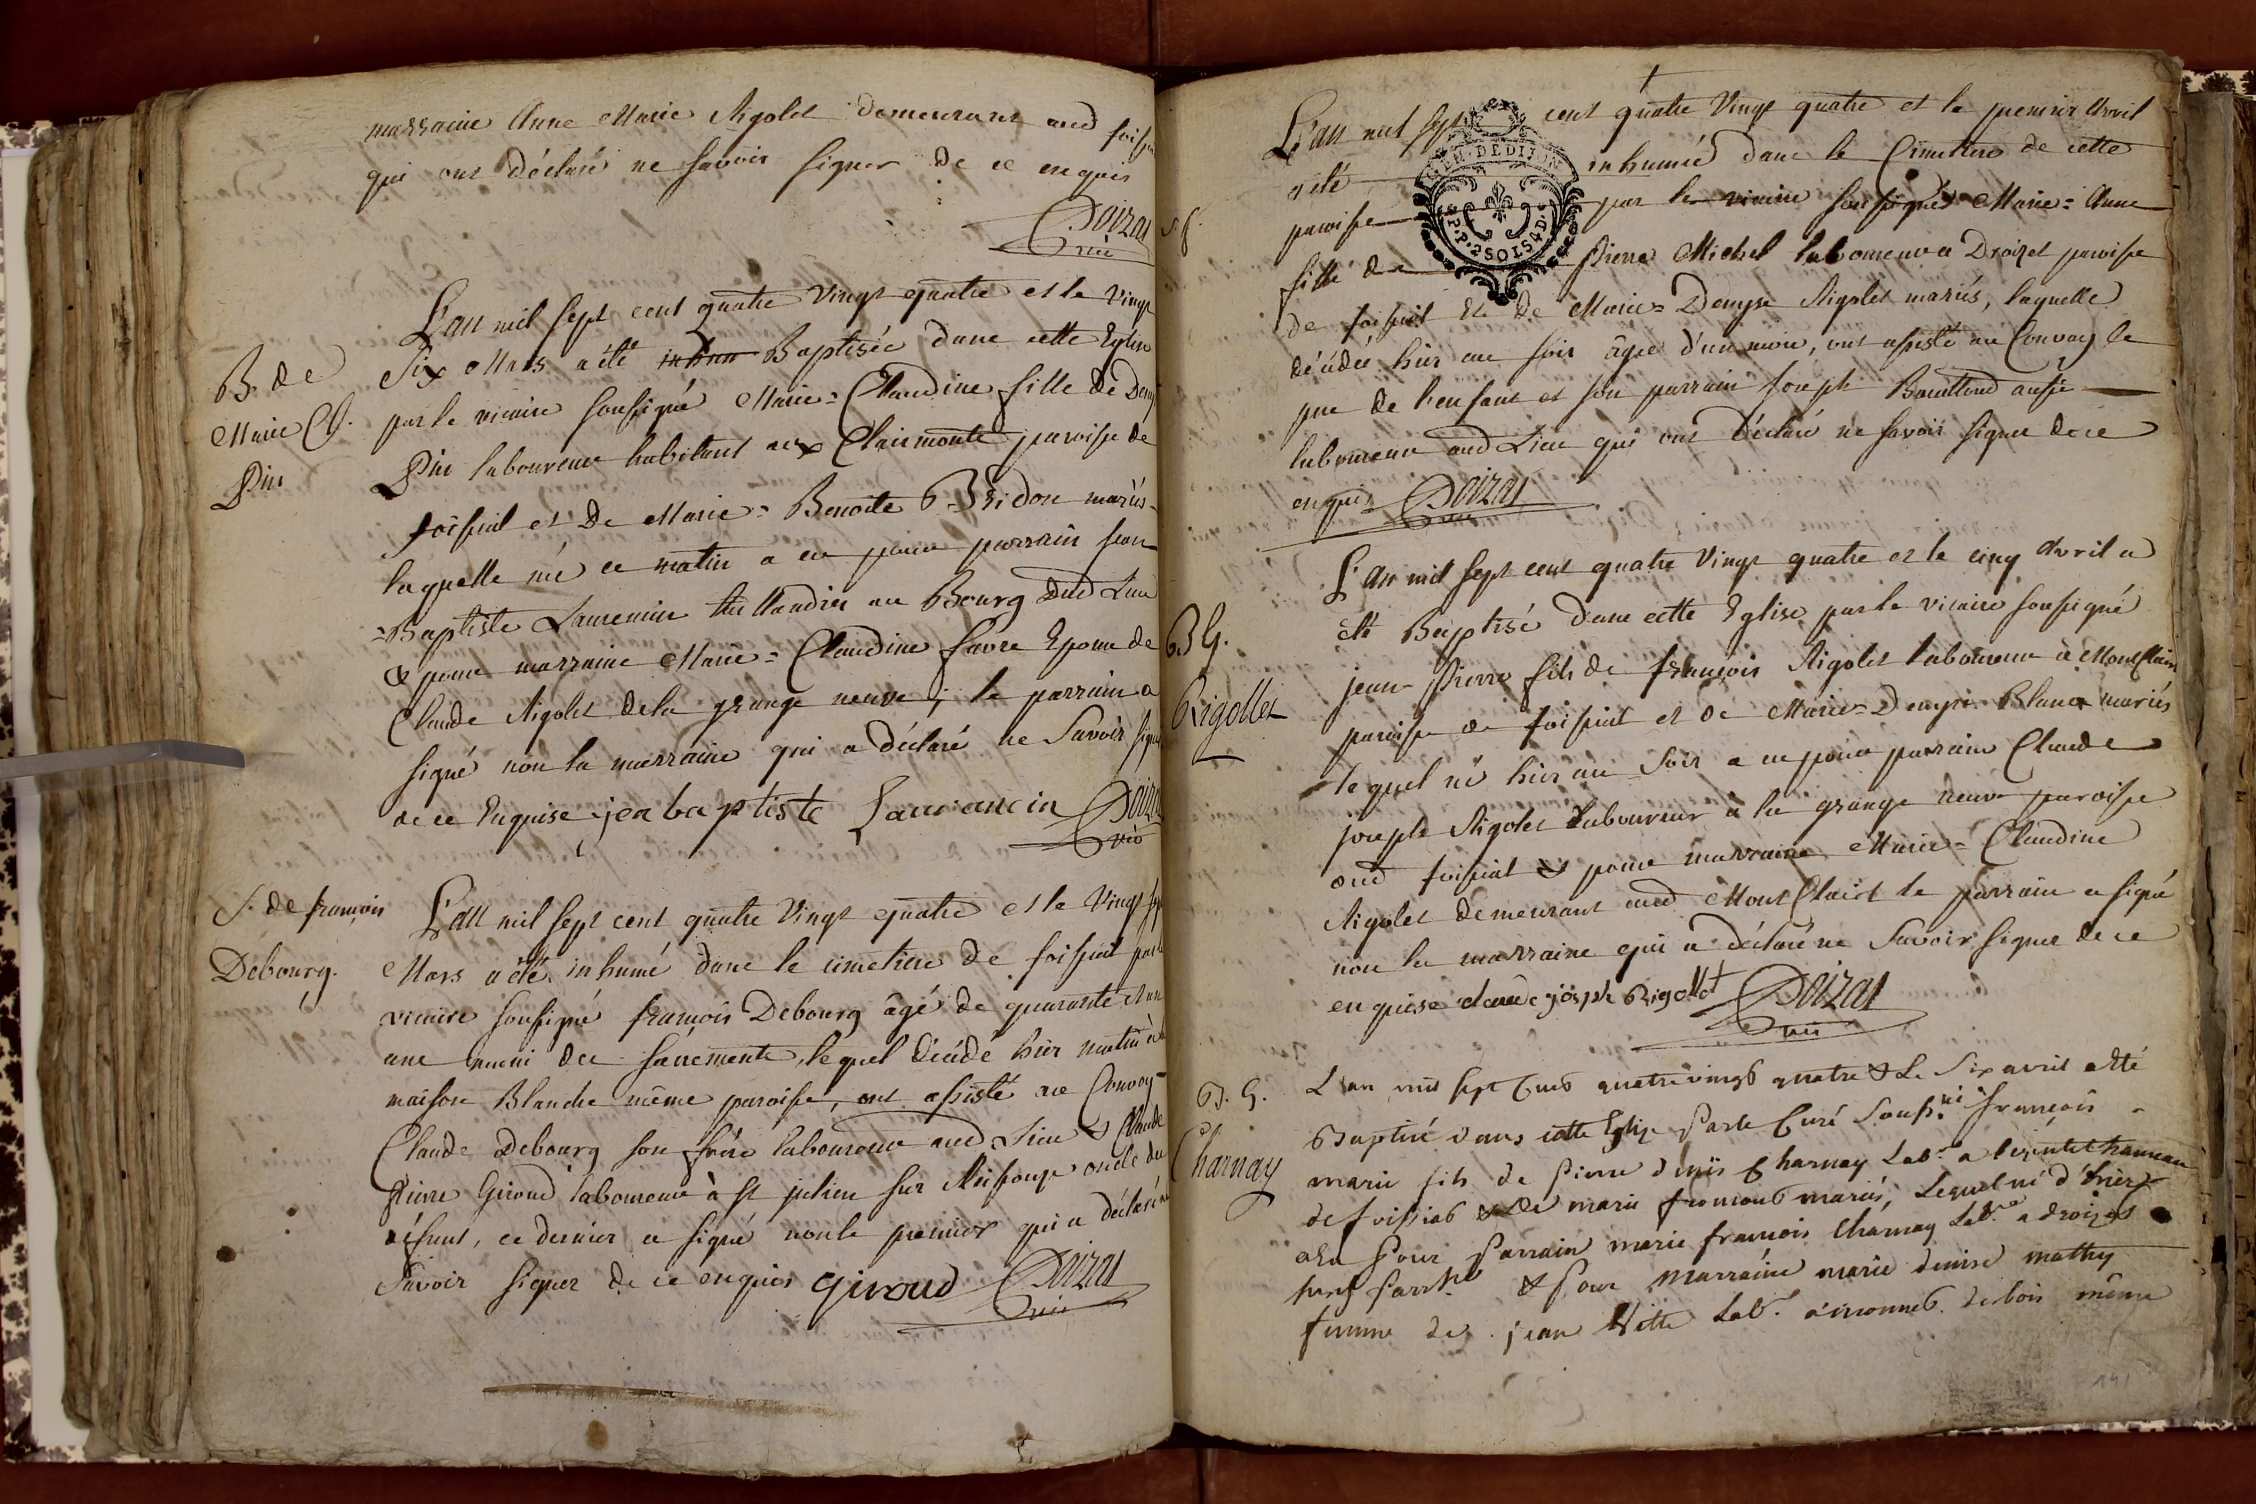 marraine Anne Marie Rigolet demeurant aud foissia
qui ont déclaré ne savoir signer de ce enquis
Doizat
vic
B. de
Marie Cl.
Piu
L'an mil sept cent quatre vingt quatre et le vingt
six Mars a été inhum Baptisée dans cette Eglise
par le vicaire soussigné Marie=Claudine fille de Deny
Piu laboureur habitant aux Clairmonts paroisse de
foissiat et De Marie=Benoite Bridon mariés
laquelle née ce matin a eu pour parrain jean
=Baptiste Lauremin au Bourg dud Lieu
& pour marraine Marie=Claudine favre Epouse de
Claude Rigolet de la grange neuve; le parrain a
signé non la marraine qui a déclaré ne Savoir signer
de ce Enquise jea baptiste Lauranein Doizat
vic
S. de françois
Debourg.
L'an mil sept cent quatre vingt quatre et le vingt sept
Mars a été inhumé dans le cimetiere de foissiat par le
vicaire soussigné françois Debourg âgé de quarante et un
ans muni des sacrements, lequel décédé hier matin à la
maison Blanche même paroisse, ont assisté au Convoy
Claude Debourg son frére laboureur aud Lieu & Claude
Pierre Giroud laboureur à St julien sur Reissouze oncle du
défunt, ce dernier a signé non le premier qui a déclaré ne
Savoir signer de ce enquis Giroud Doizat
vic
L'an mil sept cent quatre vingt quatre et le premier Avril
a été inhumée dans le Cimetiere de cette
paroisse par le vicaire soussigné Marie=Anne
fille de Pierre Michel laboureur a Droizet paroisse
de foissiat et de Marie=Denyse Rigolet mariés, laquelle
décédée hier au soir âgée d'un mois, ont assisté au Convoy le
pere de l'enfant et son parrain joseph Bouilloud aussi
laboureur aud Lieu qui ont déclaré ne savoir signer de ce
enquis Doizat
vic
GEN. DE DIJON
P.P. 2 SOLS 4 D.
B G.
Rigollet
L'an mil sept cent quatre vingt quatre et le cinq Avril a
été Baptisé dans cette Eglise par le vicaire soussigné
jean Pierre fils de françois Rigolet laboureur à MontClair
paroisse de foissiat et de Marie=Denyse Blanc mariés
lequel né hier au Soir a eu pour parrain Claude
joseph Rigolet Laboureur à la grange neuve paroisse
dud foissiat & pour marraine Marie=Claudine
Rigolet demeurant aud MontClair le parrain a signé
non la marraine qui a déclaré ne Savoir signer de ce
enquise claude joseph Rigollet Doizat
vic
B. G.
Charnay
L'an mil sept cent quatrevingt quatre & Le Six avril a été
Baptisé dans cette Eglise Par le Curé Souss.né françois
marie fils de Pierre denis Charnay Lab.r a
de foissiat & de marie fromont mariés, Lequel né d'hier
a eu Pour Parrain marie francois Charnay Lab.r a droizet
& Pour Marraine marie denise mathy
femme de jean Vitte Lab.r a des bois même
141